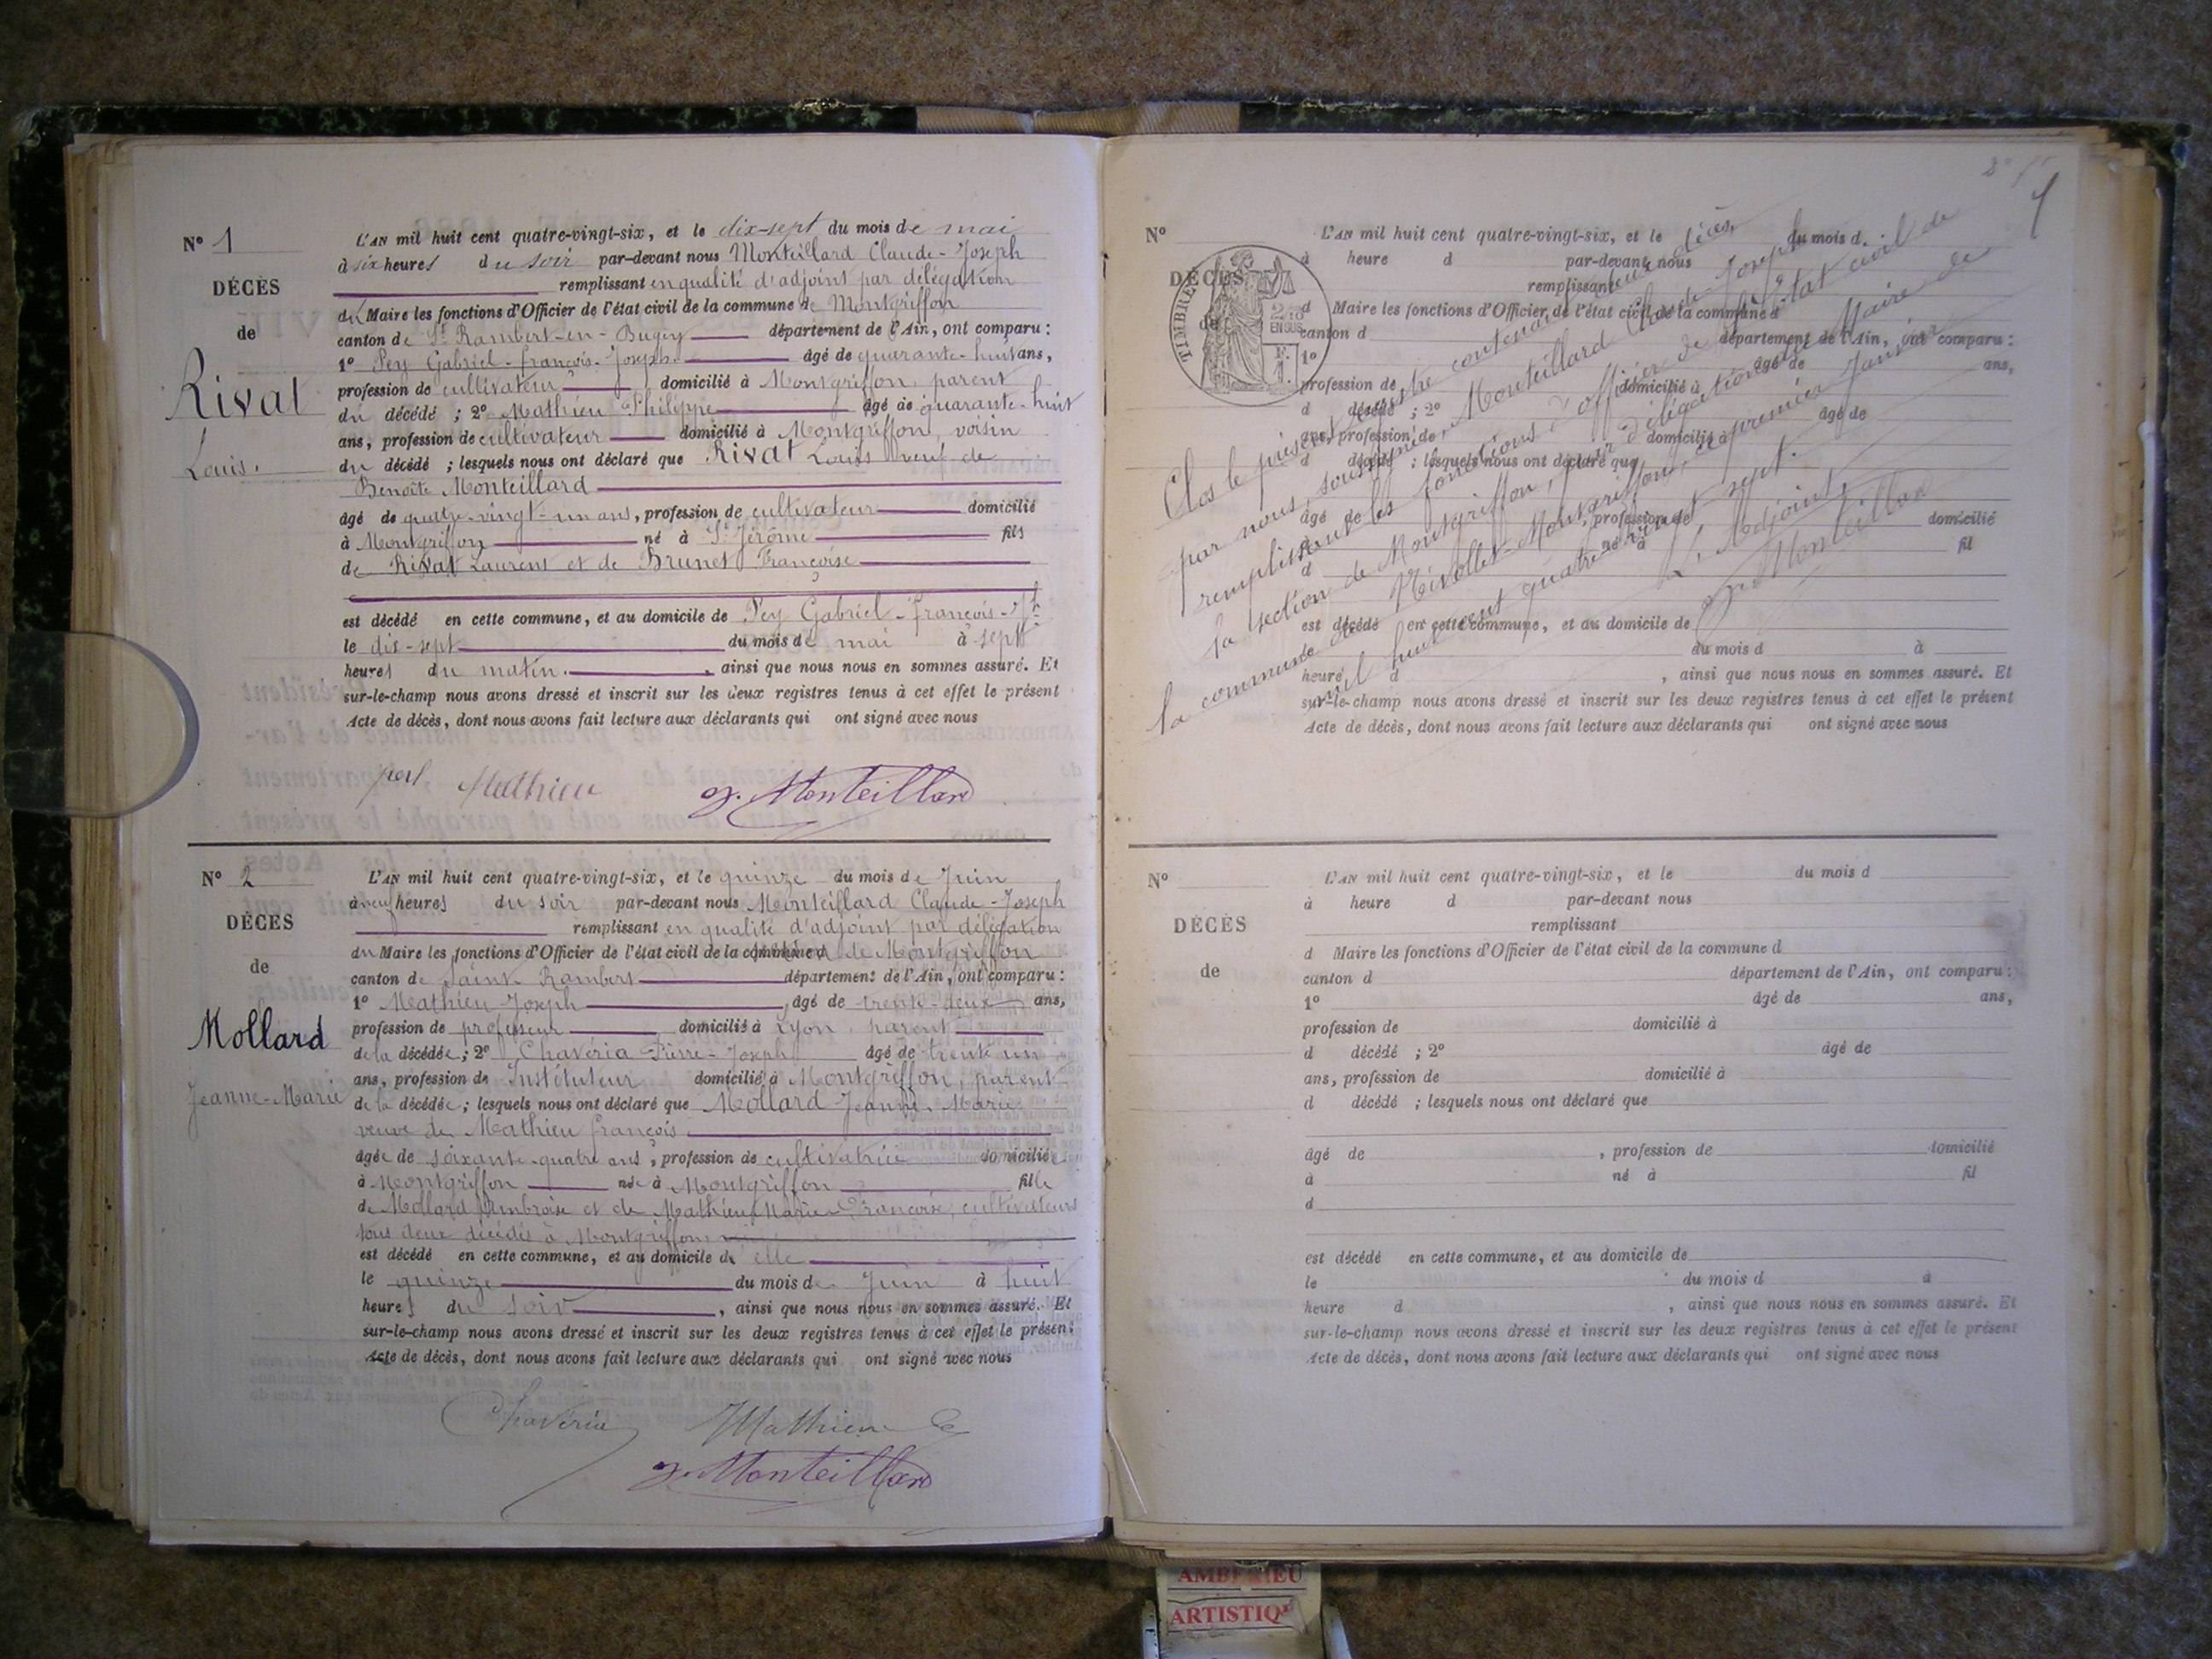 N° 1
DÉCÈS
de
Rival
Louis.
L'AN mil huit cent quatre-vingt-six, et le dix-sept du mois de mai
à six heures du soir par-devant nous Monteillard Claude-Joseph
remplissant en qualité d'adjoint par délégation
du Maire les fonctions d'Officier de l'état civil de la commune de Montgriffon
canton de St Rambert-en-Bugey département de l'Ain, ont comparu :
1° Pey Gabriel-François-Joseph âgé de quarante-huit ans,
profession de cultivateur domicilié à Montgriffon, parent
du décédé ; 2° Mathieu Philippe âgé de quarante-huit
ans, profession de cultivateur domicilié à Montgriffon, voisin
du décédé ; lesquels nous ont déclaré que Rival Louis veuf de
Benoîte Monteillard
âgé de quatre-vingt-un ans, profession de cultivateur domicilié
à Montgriffon né à St Jérôme fils
de Rival Laurent et de Brunet Françoise
est décédé en cette commune, et au domicile de Pey Gabriel-François-Jh
le dix-sept du mois de mai à sept
heures du matin. , ainsi que nous nous en sommes assuré. Et
sur-le-champ nous avons dressé et inscrit sur les deux registres tenus à cet effet le présent
Acte de décès, dont nous avons fait lecture aux déclarants qui ont signé avec nous
Mathieu J. Monteillard
N° 2
DÉCÈS
de
Mollard
Jeanne-Marie
L'AN mil huit cent quatre-vingt-six, et le quinze du mois de Juin
à neuf heures du soir par-devant nous Monteillard Claude-Joseph
remplissant en qualité d'adjoint par délégation
du Maire les fonctions d'Officier de l'état civil de la commune de Montgriffon
canton de Saint Rambert département de l'Ain, ont comparu :
1° Mathieu Joseph âgé de trente-deux ans,
profession de professeur domicilié à Lyon, parent
de la décédée ; 2° Chavéria Pierre-Joseph âgé de trente un
ans, profession de Instituteur domicilié à Montgriffon, parent
de la décédée ; lesquels nous ont déclaré que Mollard Jeanne-Marie
veuve de Mathieu françois
âgée de soixante-quatre ans, profession de cultivatrice domiciliée
à Montgriffon née à Montgriffon fille
de Mollard Ambroise et de Mathieu Marie-Françoise, cultivateurs
tous deux décédés à Montgriffon
est décédé en cette commune, et au domicile d' elle
le quinze du mois de Juin à huit
heures du soir , ainsi que nous nous en sommes assuré. Et
sur-le-champ nous avons dressé et inscrit sur les deux registres tenus à cet effet le présent
Acte de décès, dont nous avons fait lecture aux déclarants qui ont signé avec nous
Chavéria Mathieu
J. Monteillard
N°
DÉCÈS
de
TIMBRE
2/10
EN SUS
L'AN mil huit cent quatre-vingt-six, et le du mois d
à heure d par-devant nous
remplissant
d Maire les fonctions d'Officier de l'état civil de la commune d
canton d département de l'Ain, ont comparu :
1° âgé de ans,
profession de domicilié à
d décédé ; 2° âgé de
ans, profession de domicilié à
d décédé ; lesquels nous ont déclaré que
âgé de , profession de domicilié
à né à fil
d
est décédé en cette commune, et au domicile de
le du mois d à
heure d , ainsi que nous nous en sommes assuré. Et
sur-le-champ nous avons dressé et inscrit sur les deux registres tenus à cet effet le présent
Acte de décès, dont nous avons fait lecture aux déclarants qui ont signé avec nous
Clos le présent registre contenant deux décès,
par nous, soussigné, Monteillard Claude-Joseph
remplissant les fonctions d'officier de l'état civil de
la section de Montgriffon, par délégation du Maire de
la commune de Nivollet-Montgriffon, ce premier Janvier
mil huit cent quatre vingt sept.
L'Adjoint,
J. Monteillard
N°
DÉCÈS
de
L'AN mil huit cent quatre-vingt-six, et le du mois d
à heure d par-devant nous
remplissant
d Maire les fonctions d'Officier de l'état civil de la commune d
canton d département de l'Ain, ont comparu :
1° âgé de ans,
profession de domicilié à
d décédé ; 2° âgé de
ans, profession de domicilié à
d décédé ; lesquels nous ont déclaré que
âgé de , profession de domicilié
à né à fil
d
est décédé en cette commune, et au domicile de
le du mois d à
heure d , ainsi que nous nous en sommes assuré. Et
sur-le-champ nous avons dressé et inscrit sur les deux registres tenus à cet effet le présent
Acte de décès, dont nous avons fait lecture aux déclarants qui ont signé avec nous
AMBERIEU
ARTISTIQ